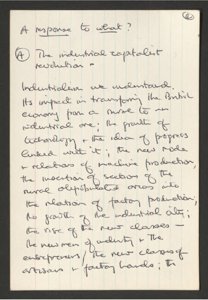 A response to what?
(A) The industrial capitalist
revolution -
Industrialism we understand.
Its impact in transforming the British
economy from a rural to an
industrial one; the growth of
technology & the idea of progress
linked with it; the new mode
& relations of machine production,
the insertion of sections of the
rural dispossessed areas into
the relations of factory production,
the growth of the industrial city;
the rise of the new classes —
the new men of industry & the
entrepreneurs; the new classes of
artisans & factory hands; the